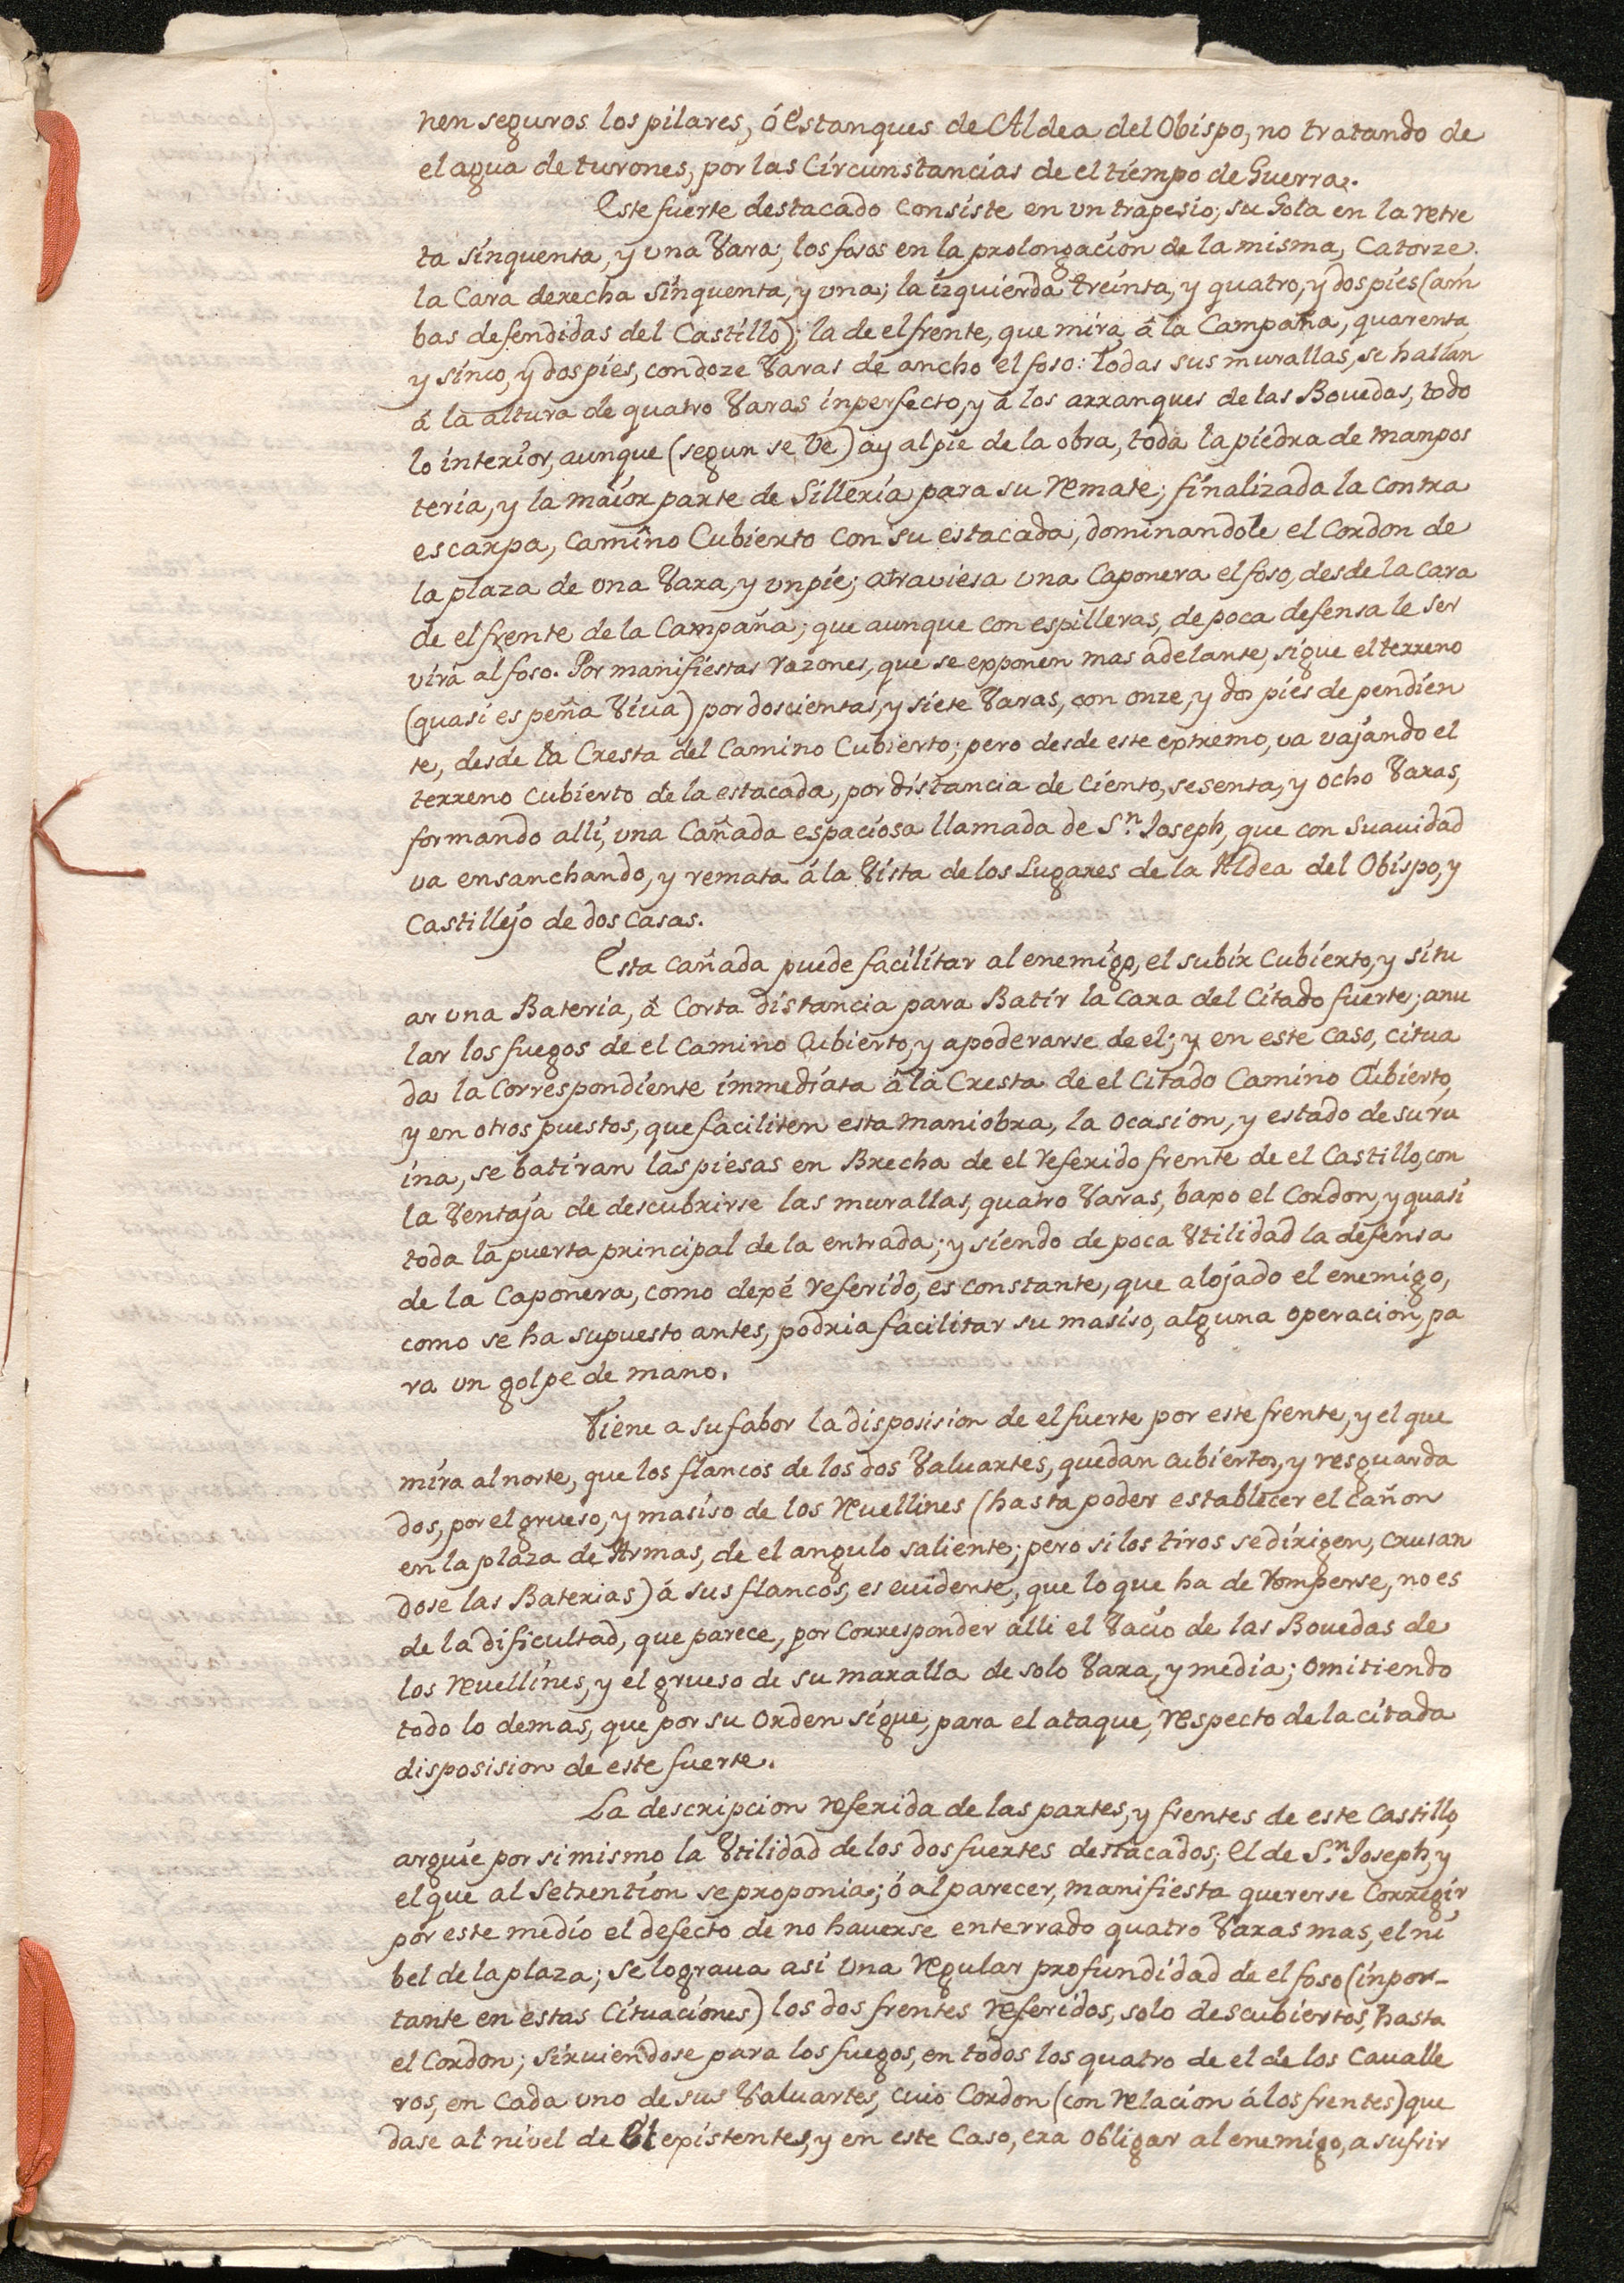 nen seguros los pilares, ó Estanques de Aldea del Obispo, no tratando de
el agua de turones, por las Circunstancias de el tiempo de Guerra.
Este fuerte destacado consiste en un trapesio; su Gola en la retre
ta sinquenta, y una Vara; los fosos en la prolongacion de la misma, Catorze.
la Cara derecha sinquenta, y una; la izquierda treinta, y quatro, y dos pies (am
bas defendidas del Castillo); la de el frente, que mira á la Campaña, quarenta
y sinco, y dos pies, con doze Varas de ancho el foso: Todas sus murallas, se hallan
á la altura de quatro Varas inperfecto, y á los arranques de las Bouedas, todo
lo interior, aunque (segun se Ve) ay al pie de la obra, toda la piedra de manpos
teria, y la maior parte de Silleria para su remate; finalizada la Contra
escarpa, Camino Cubierto con su estacada, dominandole el Cordon de
la plaza de una Vara, y un pie; atrauiesa una Caponera el foso, desde la Cara
de el frente de la Campaña; que aunque con espilleras, de poca defensa le ser
virá al foso. Por manifiestas razones, que se exponen mas adelante, sigue el terreno
(quasi es peña Viua) por doscientas, y siete Varas, con onze, y dos pies de pendien
te, desde la Cresta del Camino Cubierto; pero desde este extremo, va vajando el
terreno Cubierto de la estacada, por distancia de Ciento, sesenta, y ocho Varas,
formando alli, una Cañada espaciosa llamada de Sn. Joseph, que con Suauidad
va ensanchando, y remata á la Vista de los Lugares de la Aldea del Obispo, y
Castillejo de dos Casas.
Esta cañada puede facilitar al enemigo, el subir Cubierto, y situ
ar una Bateria, á Corta distancia para Batir la Cara del Citado fuerte; anu
lar los fuegos de el Camino Cubierto, y apoderarse de el; y en este Caso, citua
da la Correspondiente immediata á la Cresta de el Citado Camino Cubierto,
y en otros puestos, que faciliten esta maniobra, la ocasion, y estado de su ru
ina, se batiran las piesas en Brecha de el referido frente de el Castillo, con
la Ventaja de descubrirse las murallas, quatro Varas, baxo el Cordon, y quasi
toda la puerta principal de la entrada; y siendo de poca Vtilidad la defensa
de la Caponera, como dexé referido, es constante, que alojado el enemigo,
como se ha supuesto antes, podria facilitar su masiso, alguna operacion, pa
ra un golpe de mano.
Tiene a su fabor la disposision de el fuerte por este frente, y el que
mira al norte, que los flancos de los dos Valuartes, quedan cubiertos, y resguarda
dos, por el grueso, y masiso de los reuellines (hasta poder establecer el cañon
en la plaza de Armas, de el angulo saliente; pero si los tiros se dirigen, crusan
dose las Baterias) á sus flancos, es euidente, que lo que ha de romperse, no es
de la dificultad, que parece, por Corresponder alli el Vacio de las Bouedas de
los reuellines, y el grueso de su maralla de solo Vara, y media; omitiendo
todo lo demas, que por su orden sigue, para el ataque, respecto de la citada
disposision de este fuerte.
La descripcion referida de las partes, y frentes de este Castillo,
arguie por si mismo la Vtilidad de los dos fuertes destacados; el de Sn. Joseph, y
el que al Setrention se proponia; ó al parecer, manifiesta quererse Corregir,
por este medio el defecto de no hauerse enterrado quatro Varas mas, el ni
bel de la plaza; se lograua asi una regular profundidad de el foso (inpor-
tante en estas Cituaciones) los dos frentes referidos, solo descubiertos, hasta
el Cordon; siruiendose para los fuegos, en todos los quatro de el de los Caualle
ros, en Cada uno de sus Valuartes, cuio Cordon (con relacion á los frentes) que
dase al nivel de el existente, y en este Caso, era obligar al enemigo, a sufrir